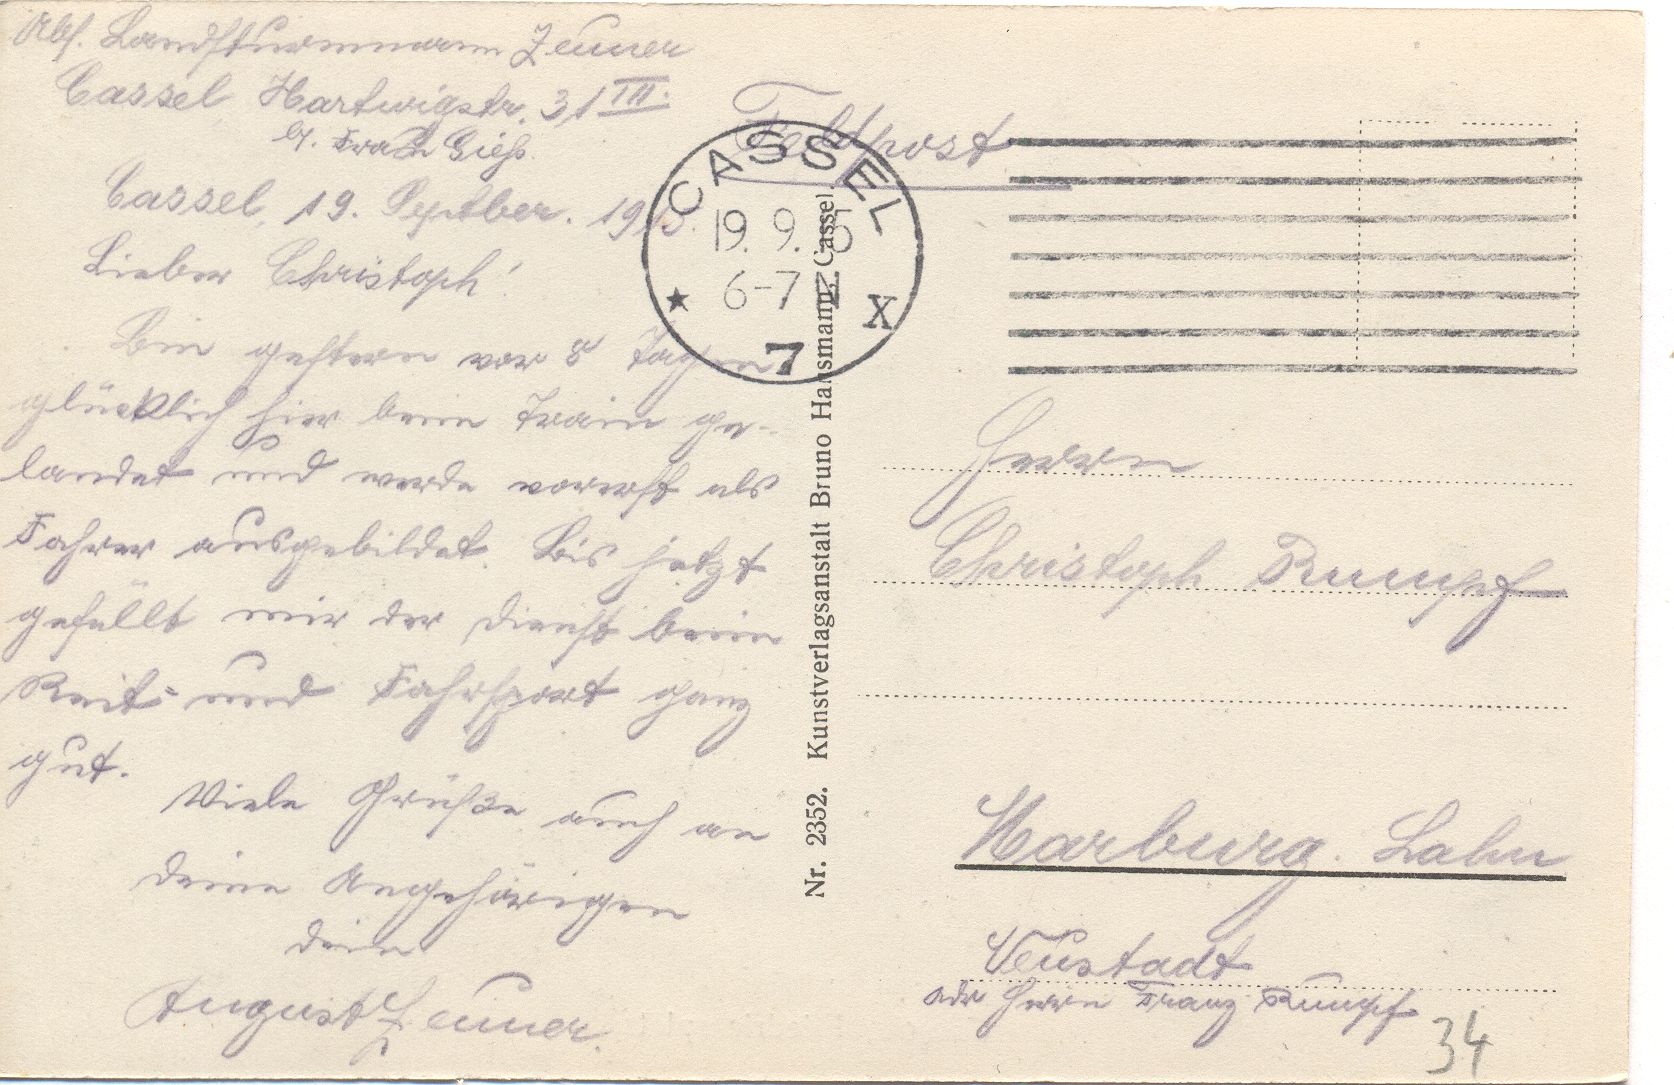 Abs. Landsturmmann Zeuner
Cassel Hartwigstr. 31 III.
b. Frau Gieß.
Cassel, 19. Septber. 1915.
Lieber Christoph!
Bin gestern vor 8 Tagen
glücklich hier beim Train ge-
landet und werde vorerst als
Fahrer ausgebildet. Bis jetzt
gefällt mir der Dienst beim
Reit- und Fahrsport ganz
gut.
Viele Grüße auch an
deine Angehörigen
dein
August Zeuner.
Feldpost
CASSEL
19. 9. 15
6-7 N
★ X
7
Nr. 2352. Kunstverlagsanstalt Bruno Hansmann, Cassel.
Herrn
Christoph Rumpf
Marburg. Lahn
Neustadt
adr Herrn Franz Rumpf
34